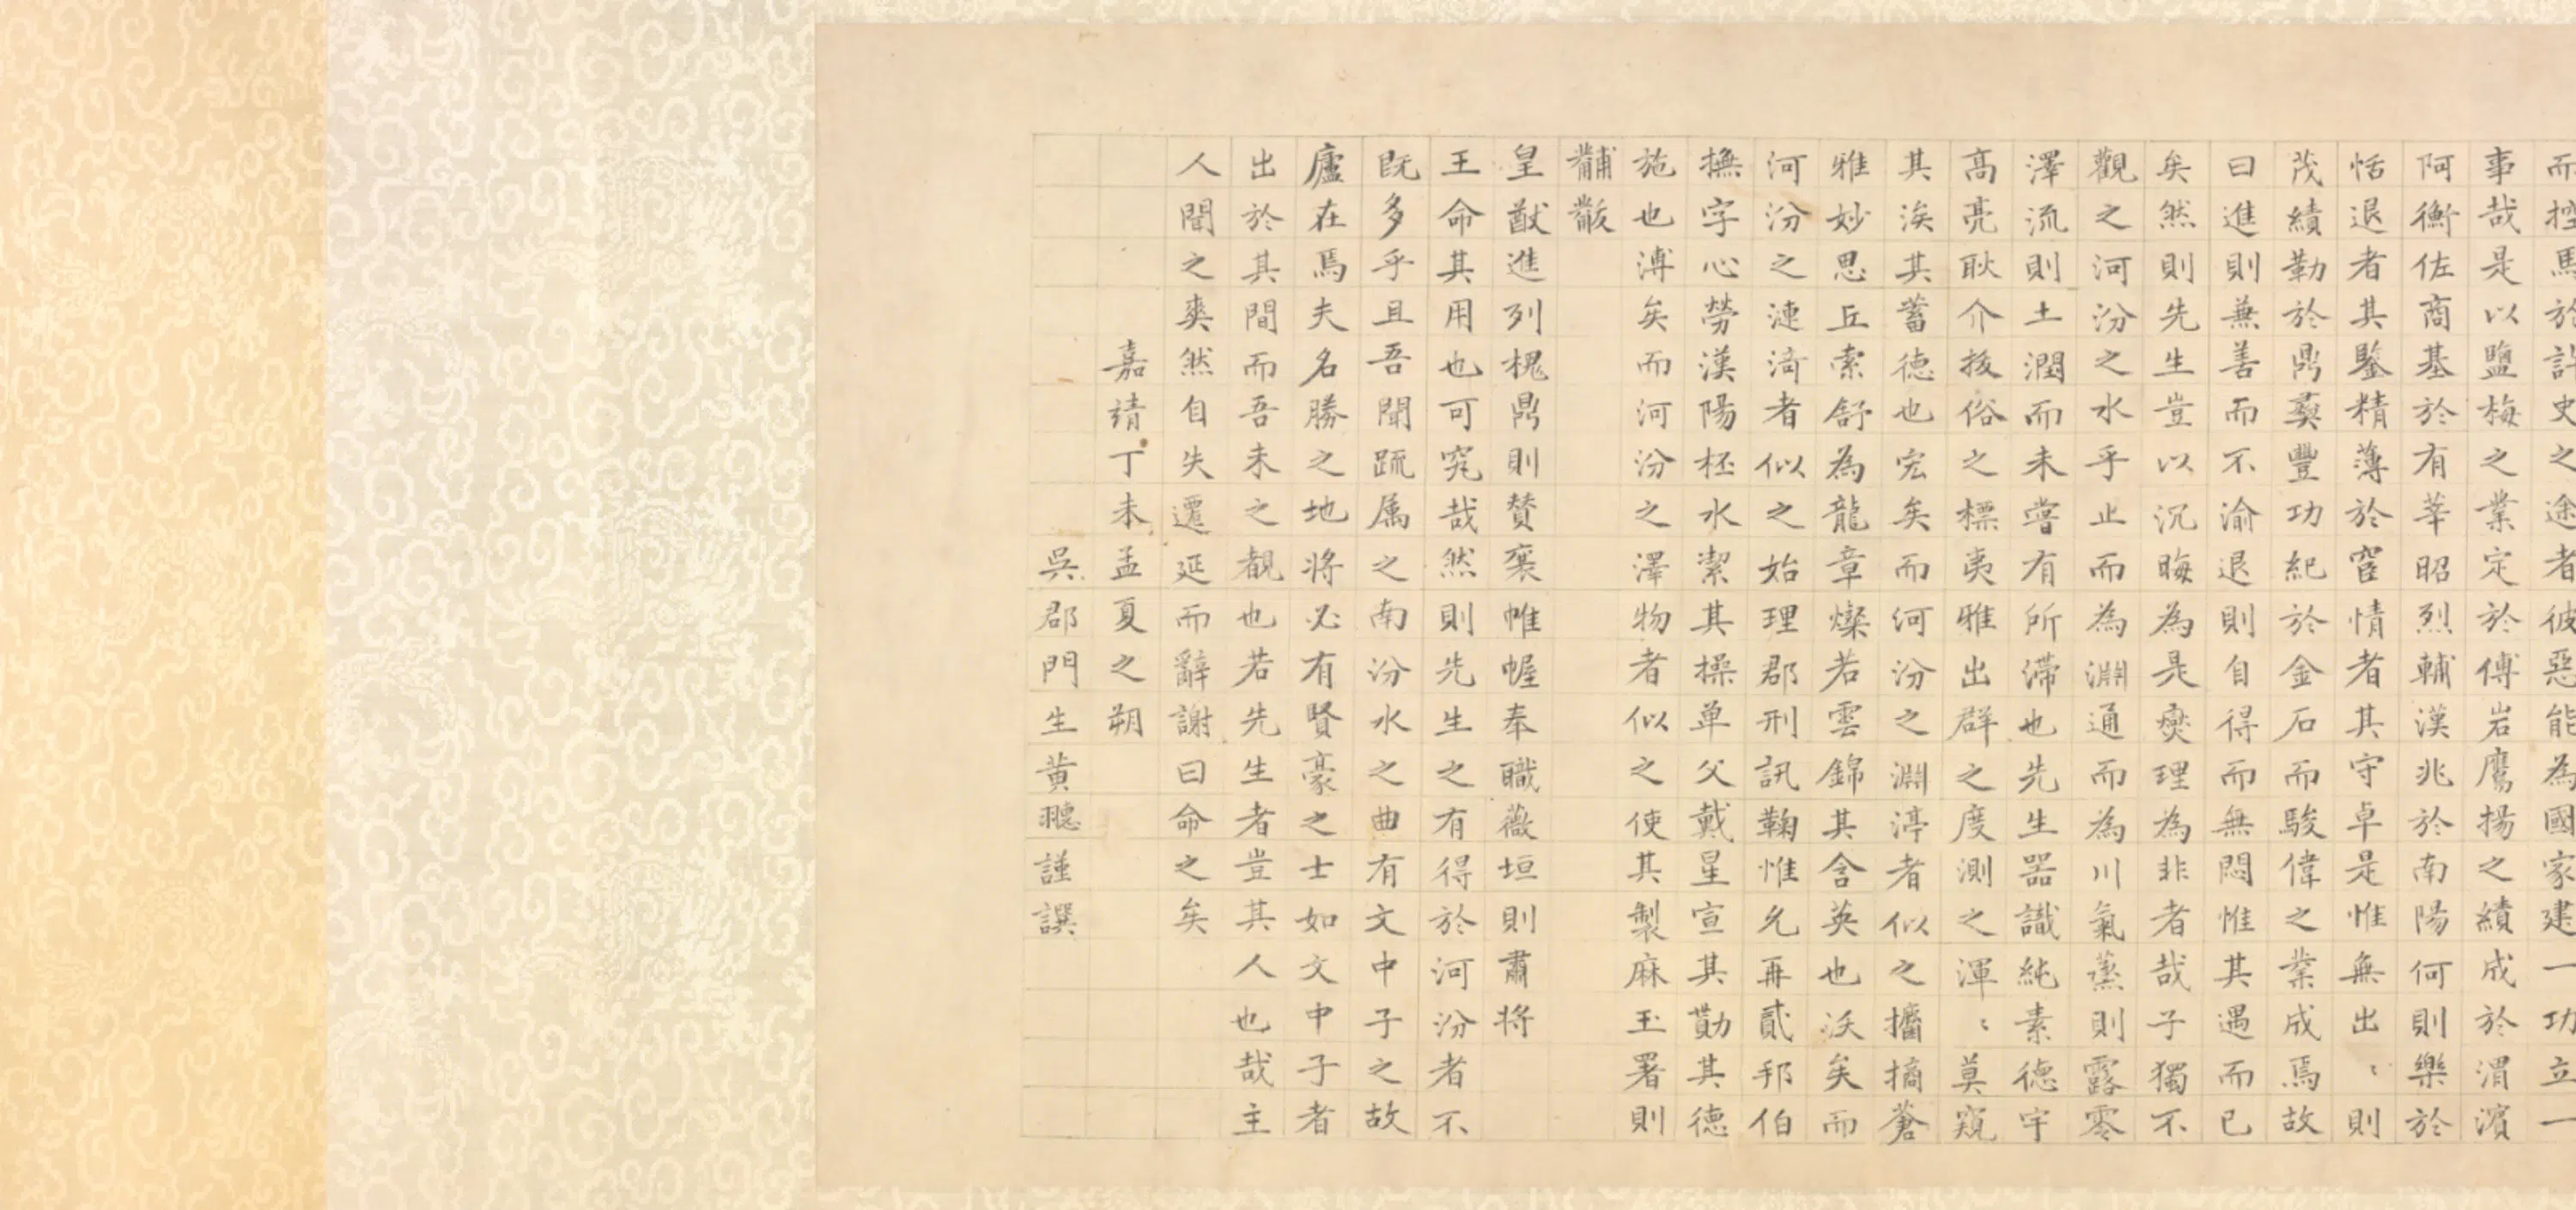 而控馬於許史之途者彼惡能為國家建一功立一
事哉是以鹽梅之業定於傅岩鷹揚之績成於渭濱
阿衡佐商基於有莘昭烈輔漢兆於南陽何則樂於
恬退者其鑒精薄於宦情者其守卓是惟無出〻則
茂績勒於鼎彝豐功紀於金石而駿偉之業成焉故
曰進則無善而不渝退則自得而無悶惟其遇而已
矣然則先生豈以沉晦為是爕理為非者哉子獨不
觀之河汾之水乎止而為淵通而為川氣蒸則露零
澤流則土潤而未嘗有所滯也先生器識純素德宇
高亮耿介拔俗之標夷雅出群之度測之渾〻莫窺
其涘其蓄德也宏矣而河汾之淵渟者似之擂摛蒼
雅妙思丘索舒為龍章燦若雲錦其含英也沃矣而
河汾之漣漪者似之始理郡刑訊鞠惟允再貳邦伯
撫字心勞漢陽柸水潔其操单父戴星宣其勩其德
施也溥矣而河汾之澤物者似之使其製麻玉署則
黼黻
皇猷進列槐鼎則贊襃帷幄奉職薇垣則肅將
王命其用也可窮哉然則先生之有得於河汾者不
既多乎且吾聞疏属之南汾水之曲有文中子之故
廬在焉夫名勝之地將必有賢豪之士如文中子者
出於其間而吾未之覩也若先生者豈其人也哉主
人聞之爽然自失遷延而辭謝曰命之矣
嘉靖丁未孟夏之朔
吳郡門生黃謹譔